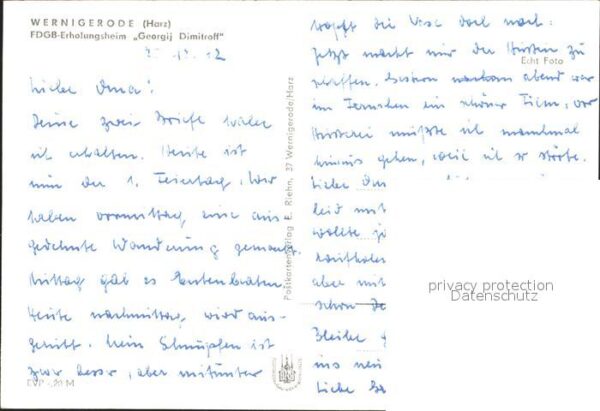 WERNIGERODE (Harz)
FDGB-Erholungsheim „Georgij Dimitroff"
Liebe Oma!
Deine zwei Briefe habe
ich erhalten. Heute ist
nun der 1. Feiertag. Wir
haben vormittag eine aus-
gedehnte Wanderung gemacht.
Mittag gab es Entenbraten.
Heute nachmittag wird aus-
geruht. Mein Schnupfen ist
zwar besser, aber mitunter
EVP -,20 M
Postkartenverlag E. Riehn, 37 Wernigerode/Harz
tropft die Nase doch noch.
Jetzt macht mir der Husten zu
Echt Foto
schaffen. Gestern abend war
im Fernsehen ein schöner Film, vor
Husterei mußte ich manchmal
hinaus gehen, weil ich so störte.
Liebe
leid mit
wollte
aber mit
schon
Bleibe
ins neue
Liebe
privacy protection
Datenschutz